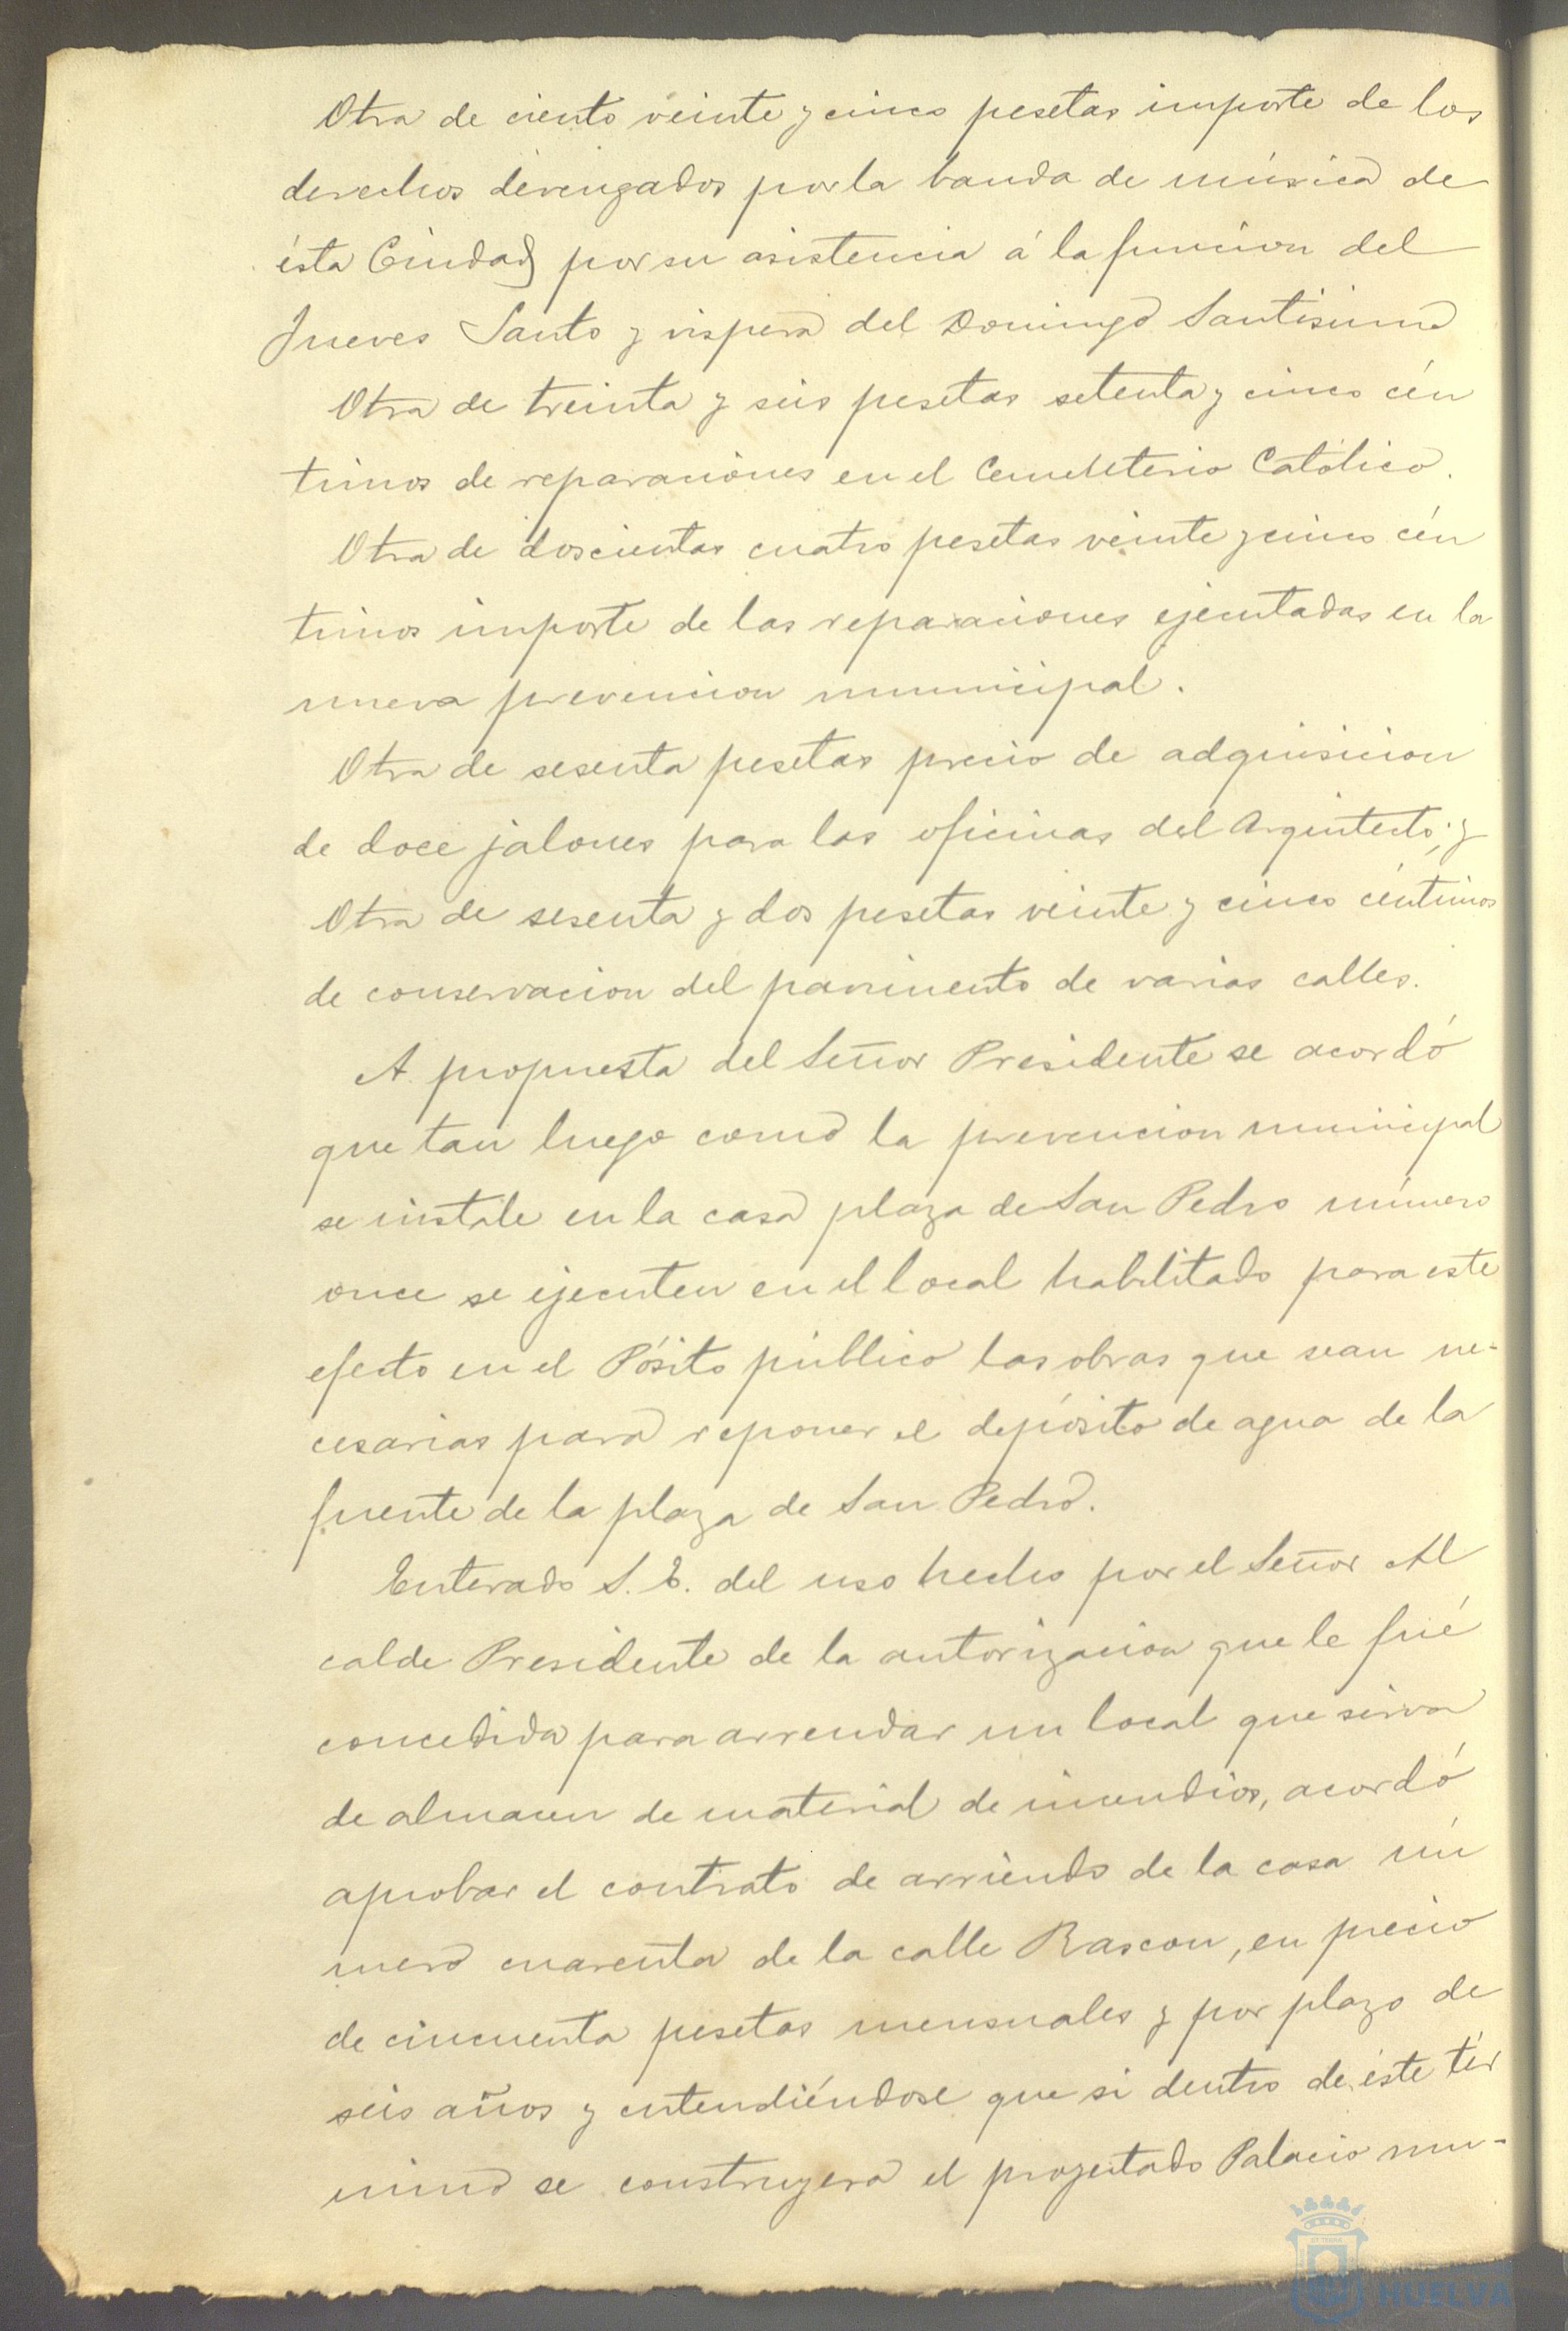 Otra de ciento veinte y cinco pesetas importe de los
derechos devengados por la banda de música de
ésta Ciudad por su asistencia á la funcion del
Jueves Santo y vispera del Domingo Santisimo
Otra de treinta y seis pesetas setenta y cinco cén
timos de reparaciones en el Cementerio Católico.
Otra de doscientas cuatro pesetas veinte y cinco cén
timos importe de las reparaciones ejecutadas en la
nueva prevencion municipal.
Otra de sesenta pesetas precio de adquisicion
de doce jalones para las oficinas del Arquitecto; y
Otra de sesenta y dos pesetas veinte y cinco céntimos
de conservacion del pavimento de varias calles.
A propuesta del Señor Presidente se acordó
que tan luego como la prevencion municipal
se instale en la casa plaza de San Pedro número
once se ejecuten en el local habilitado para este
efecto en el Pósito público las obras que sean ne-
cesarias para reponer el depósito de agua de la
fuente de la plaza de San Pedro.
Enterado S. E. del uso hecho por el Señor Al
calde Presidente de la autorizacion que le fué
concedida para arrendar un local que sirva
de almacen de material de incendios, acordó
aprobar el contrato de arriendo de la casa nú
mero cuarenta de la calle Rascon, en precio
de cincuenta pesetas mensuales y por plazo de
seis años y entendiéndose que si dentro de éste tér
mino se construyera el proyectado Palacio mu-
HUELVA